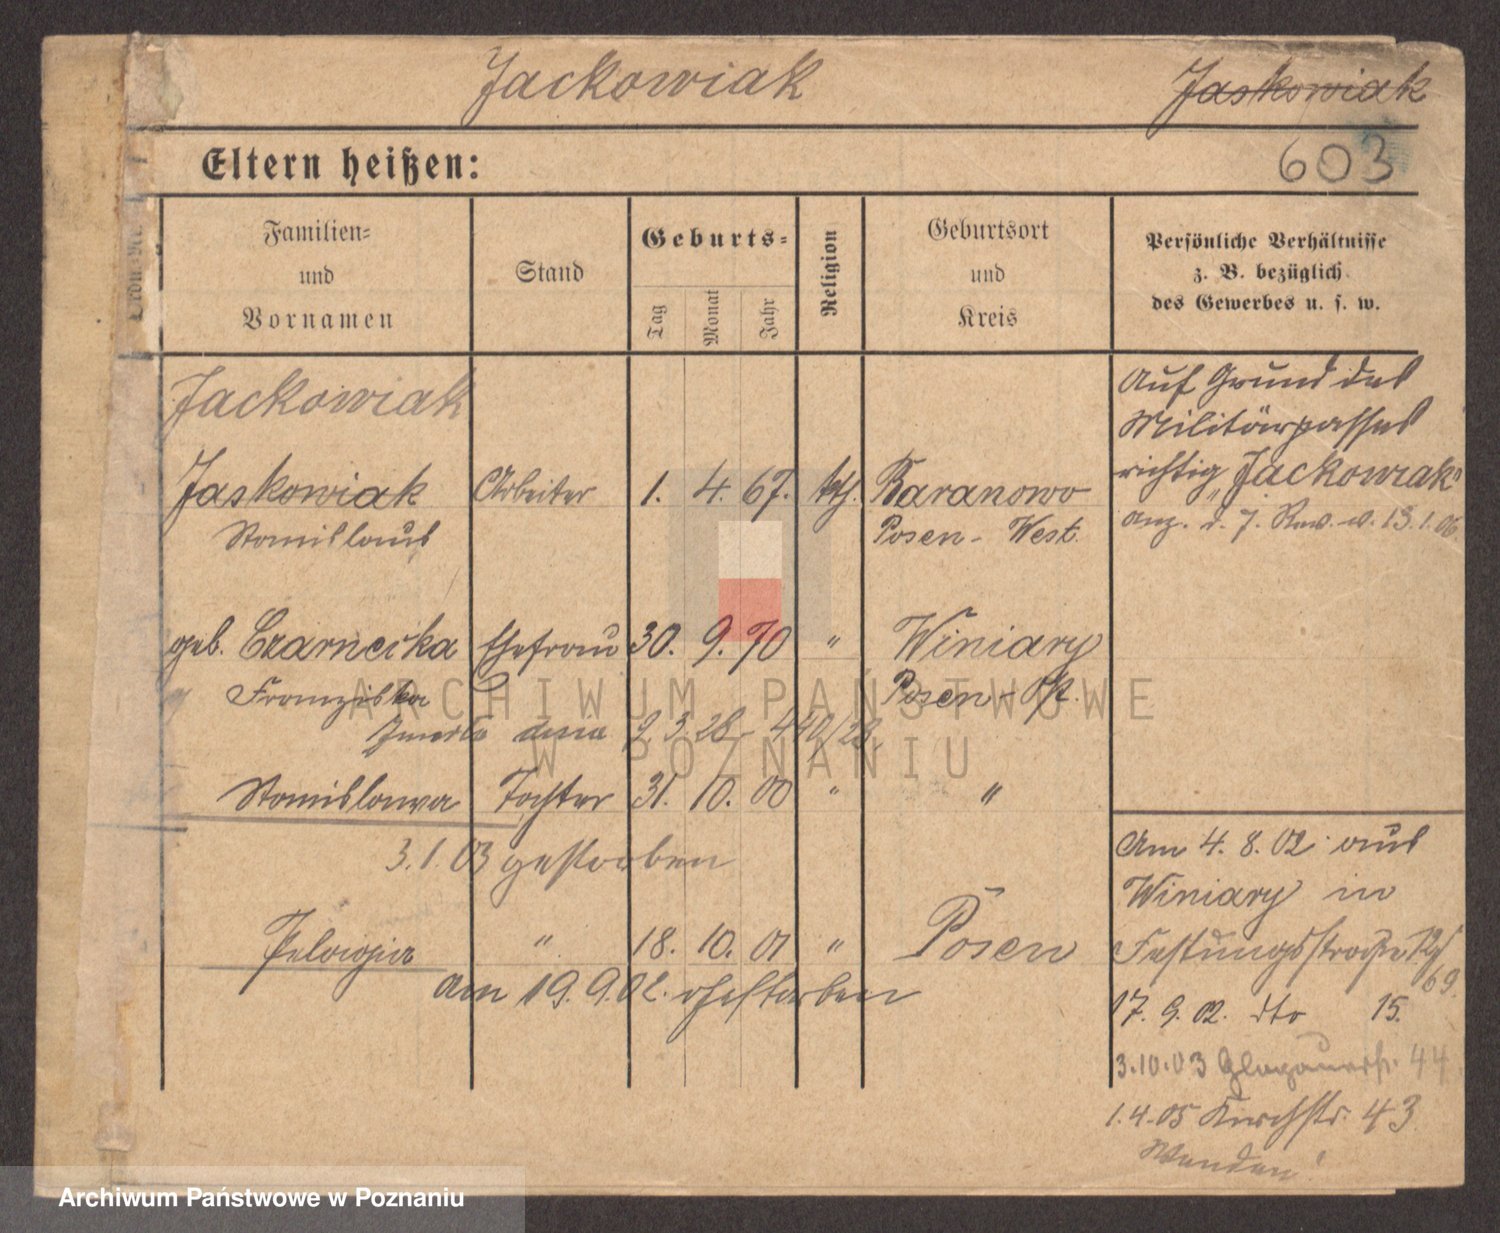 Jackowiak
Jaskowiak
Eltern heißen:
603
Ordn.-Nr.
Familien-
und
Vornamen
Stand
Geburts-
Tag
Monat
Jahr
Religion
Geburtsort
und
Kreis
Persönliche Verhältnisse
z. B. bezüglich
des Gewerbes u. s. w.
Jackowiak
Jaskowiak Arbeiter 1. 4. 67. kth. Baranowo
Stanislaus Posen-West.
Auf Grund des
Militärpasses
richtig „Jackowiak"
anz. d. 7. Rev. v. 13.1.06.
geb. Czarnecka Ehefrau 30. 9. 70 " Winiary
Franziska Posen-Ost.
Zmarła dnia 9.3.28 - 440/28
Stanislawa Tochter 31. 10. 00 " "
3.1.03 gestorben
Pelagia " 18. 10. 01 " Posen
am 19.9.02. gestorben
Am 4.8.02 aus
Winiary in
Festungsstraße
69.
17.9.02. dto 15.
3.10.03 Glogauerstr. 44
1.4.05 Kirchstr. 43
Wenden!
ARCHIWUM PAŃSTWOWE
W POZNANIU
Archiwum Państwowe w Poznaniu